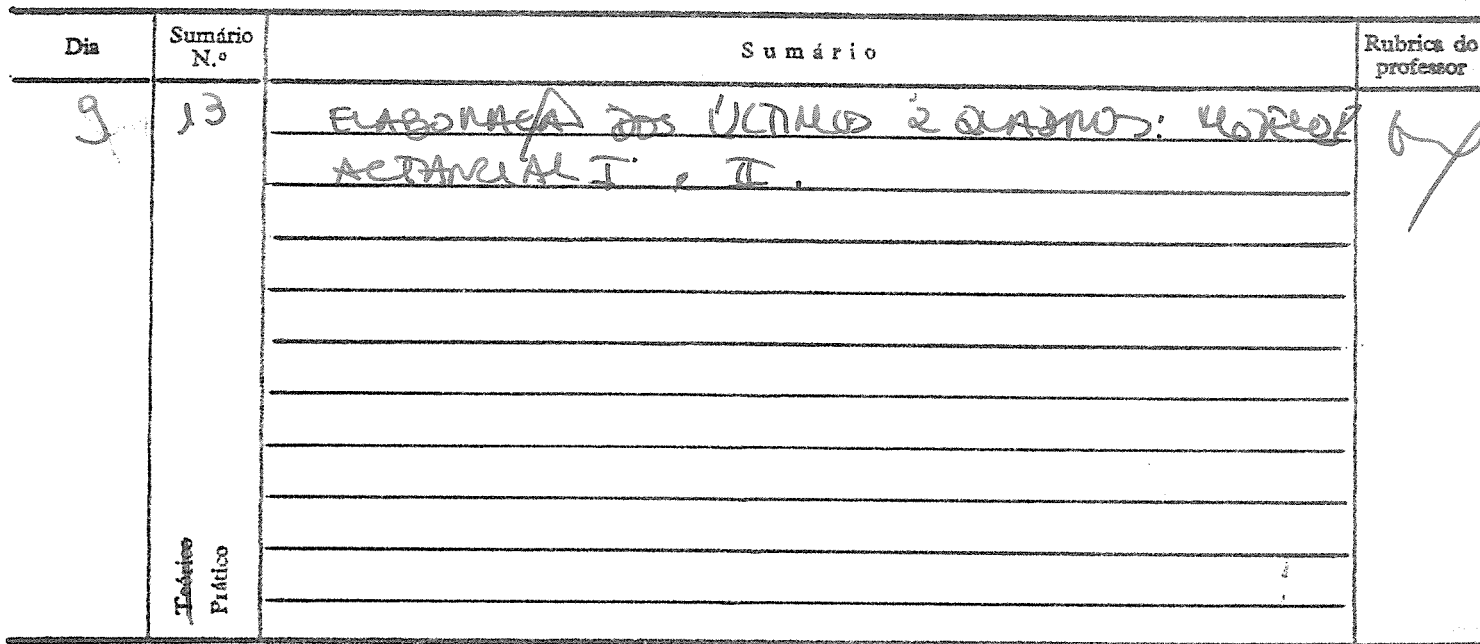 Dia
Sumário N.º
Sumário
Rubrica do professor
9
13
ELABORAÇÃO DOS ÚLTIMOS 2 QUADROS: MODELOS
ACTANCIAL I e II.
Teórico
Prático